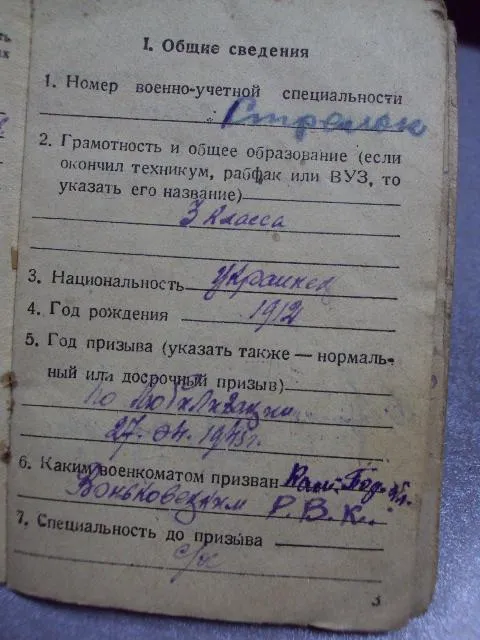 I. Общие сведения
1. Номер военно-учетной специальности
Стрелок
2. Грамотность и общее образование (если
окончил техникум, рабфак или ВУЗ, то
указать его название)
3 класса
3. Национальность украинец
4. Год рождения 1912
5. Год призыва (указать также — нормаль-
ный или досрочный призыв)
По мобилизации
27.04.1945г.
6. Каким военкоматом призван Кам. Под.
Воньковецким Р.В.К.
7. Специальность до призыва
с/х
3